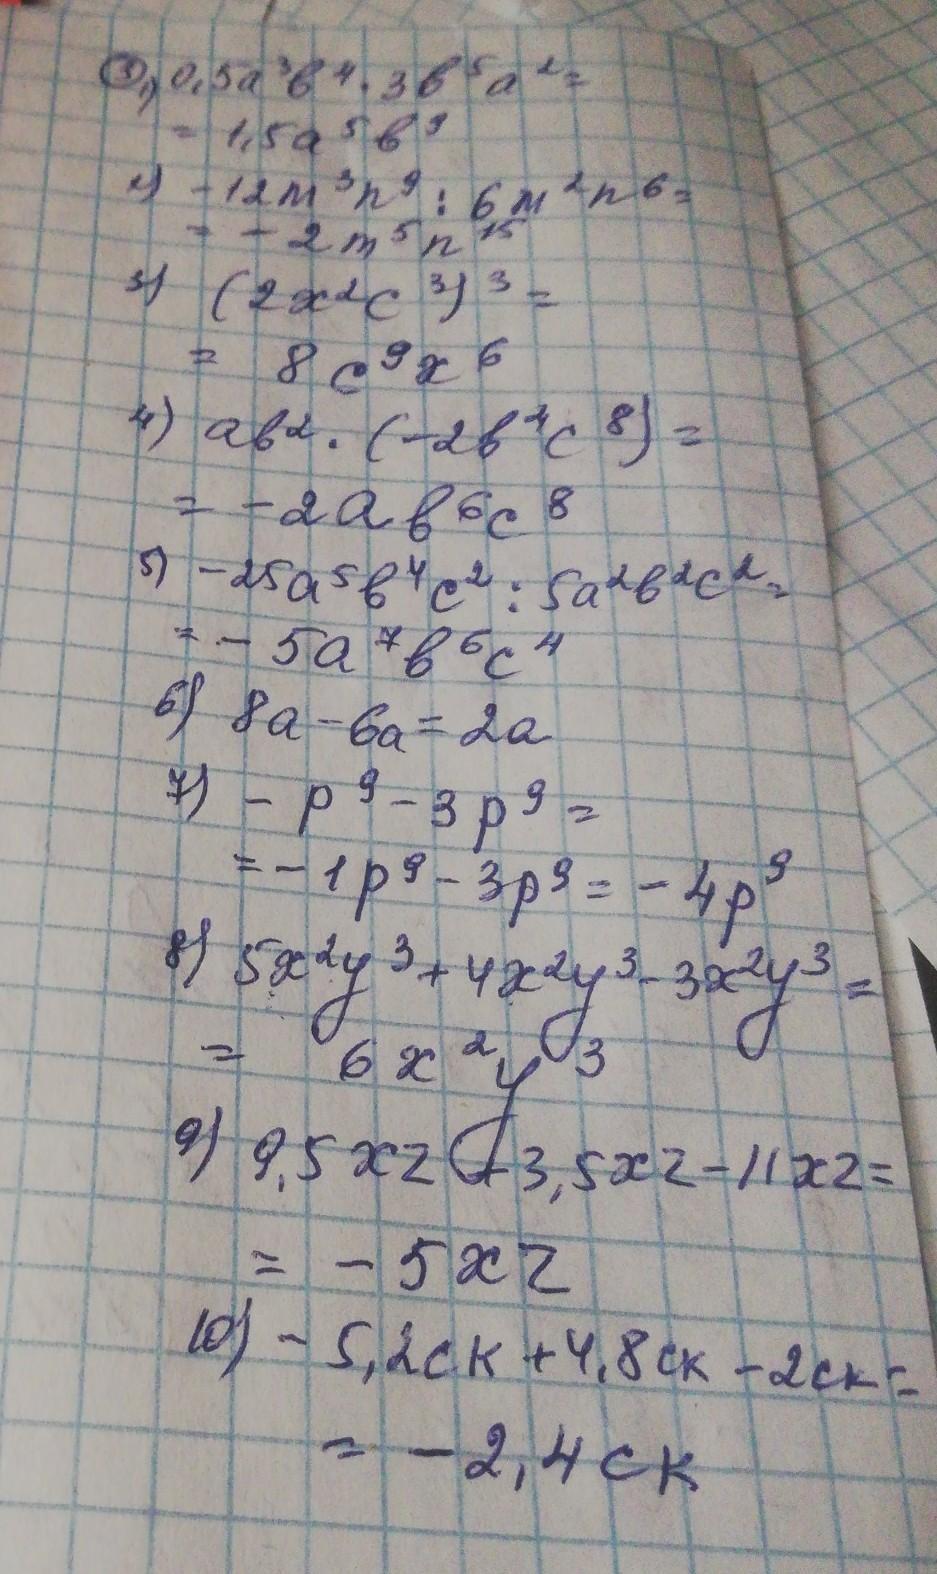 ③ 1) 0,5a³b⁴ · 3b⁵a² =
= 1,5a⁵b⁹
2) -12m³n⁹ : 6m²n⁶ =
= -2m⁵n¹⁵
3) (2x²c³)³ =
= 8c⁹x⁶
4) ab² · (-2b⁴c⁸) =
= -2ab⁶c⁸
5) -25a⁵b⁴c² : 5a²b²c² =
= -5a⁷b⁶c⁴
6) 8a - 6a = 2a
7) -p⁹ - 3p⁹ =
= -1p⁹ - 3p⁹ = -4p⁹
8) 5x²y³ + 4x²y³ - 3x²y³ =
= 6x²y³
9) 9,5xz + 3,5xz - 11xz =
= -5xz
10) -5,2ck + 4,8ck - 2ck =
= -2,4ck